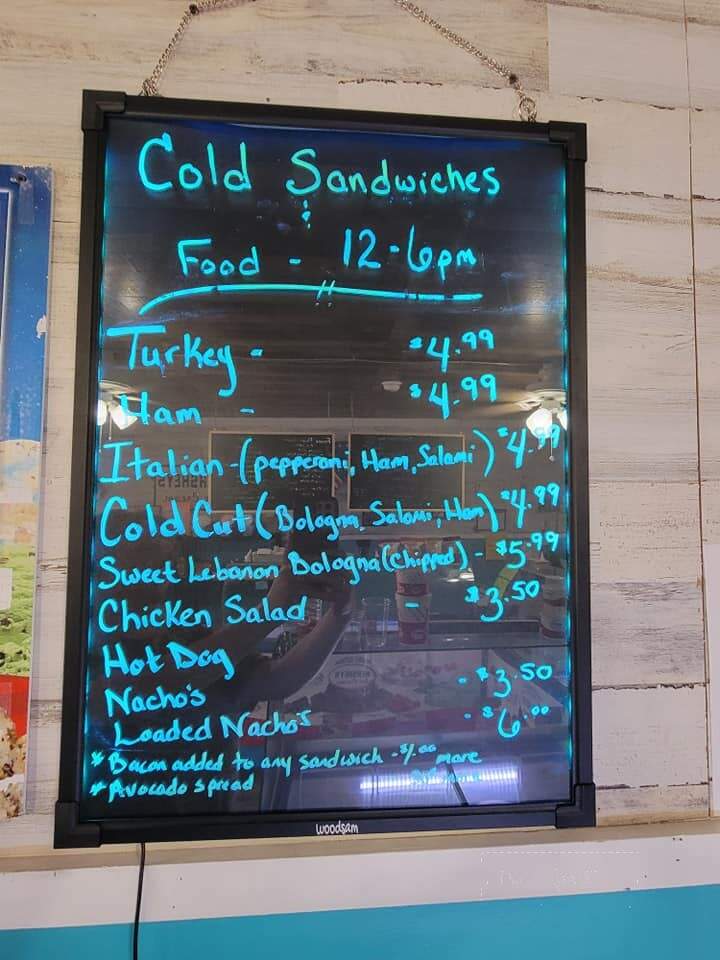 Cold Sandwiches
&
Food - 12-6pm
Turkey - $4.99
Ham - $4.99
Italian-(pepperoni, Ham, Salami) $4.99
Cold Cut (Bologna, Salami, Ham) $4.99
Sweet Lebanon Bologna (chipped) - $5.99
Chicken Salad - $3.50
Hot Dog
Nacho's - $3.50
Loaded Nacho's - $6.00
* Bacon added to any sandwich - $1.00 more
* Avocado spread
woodsam